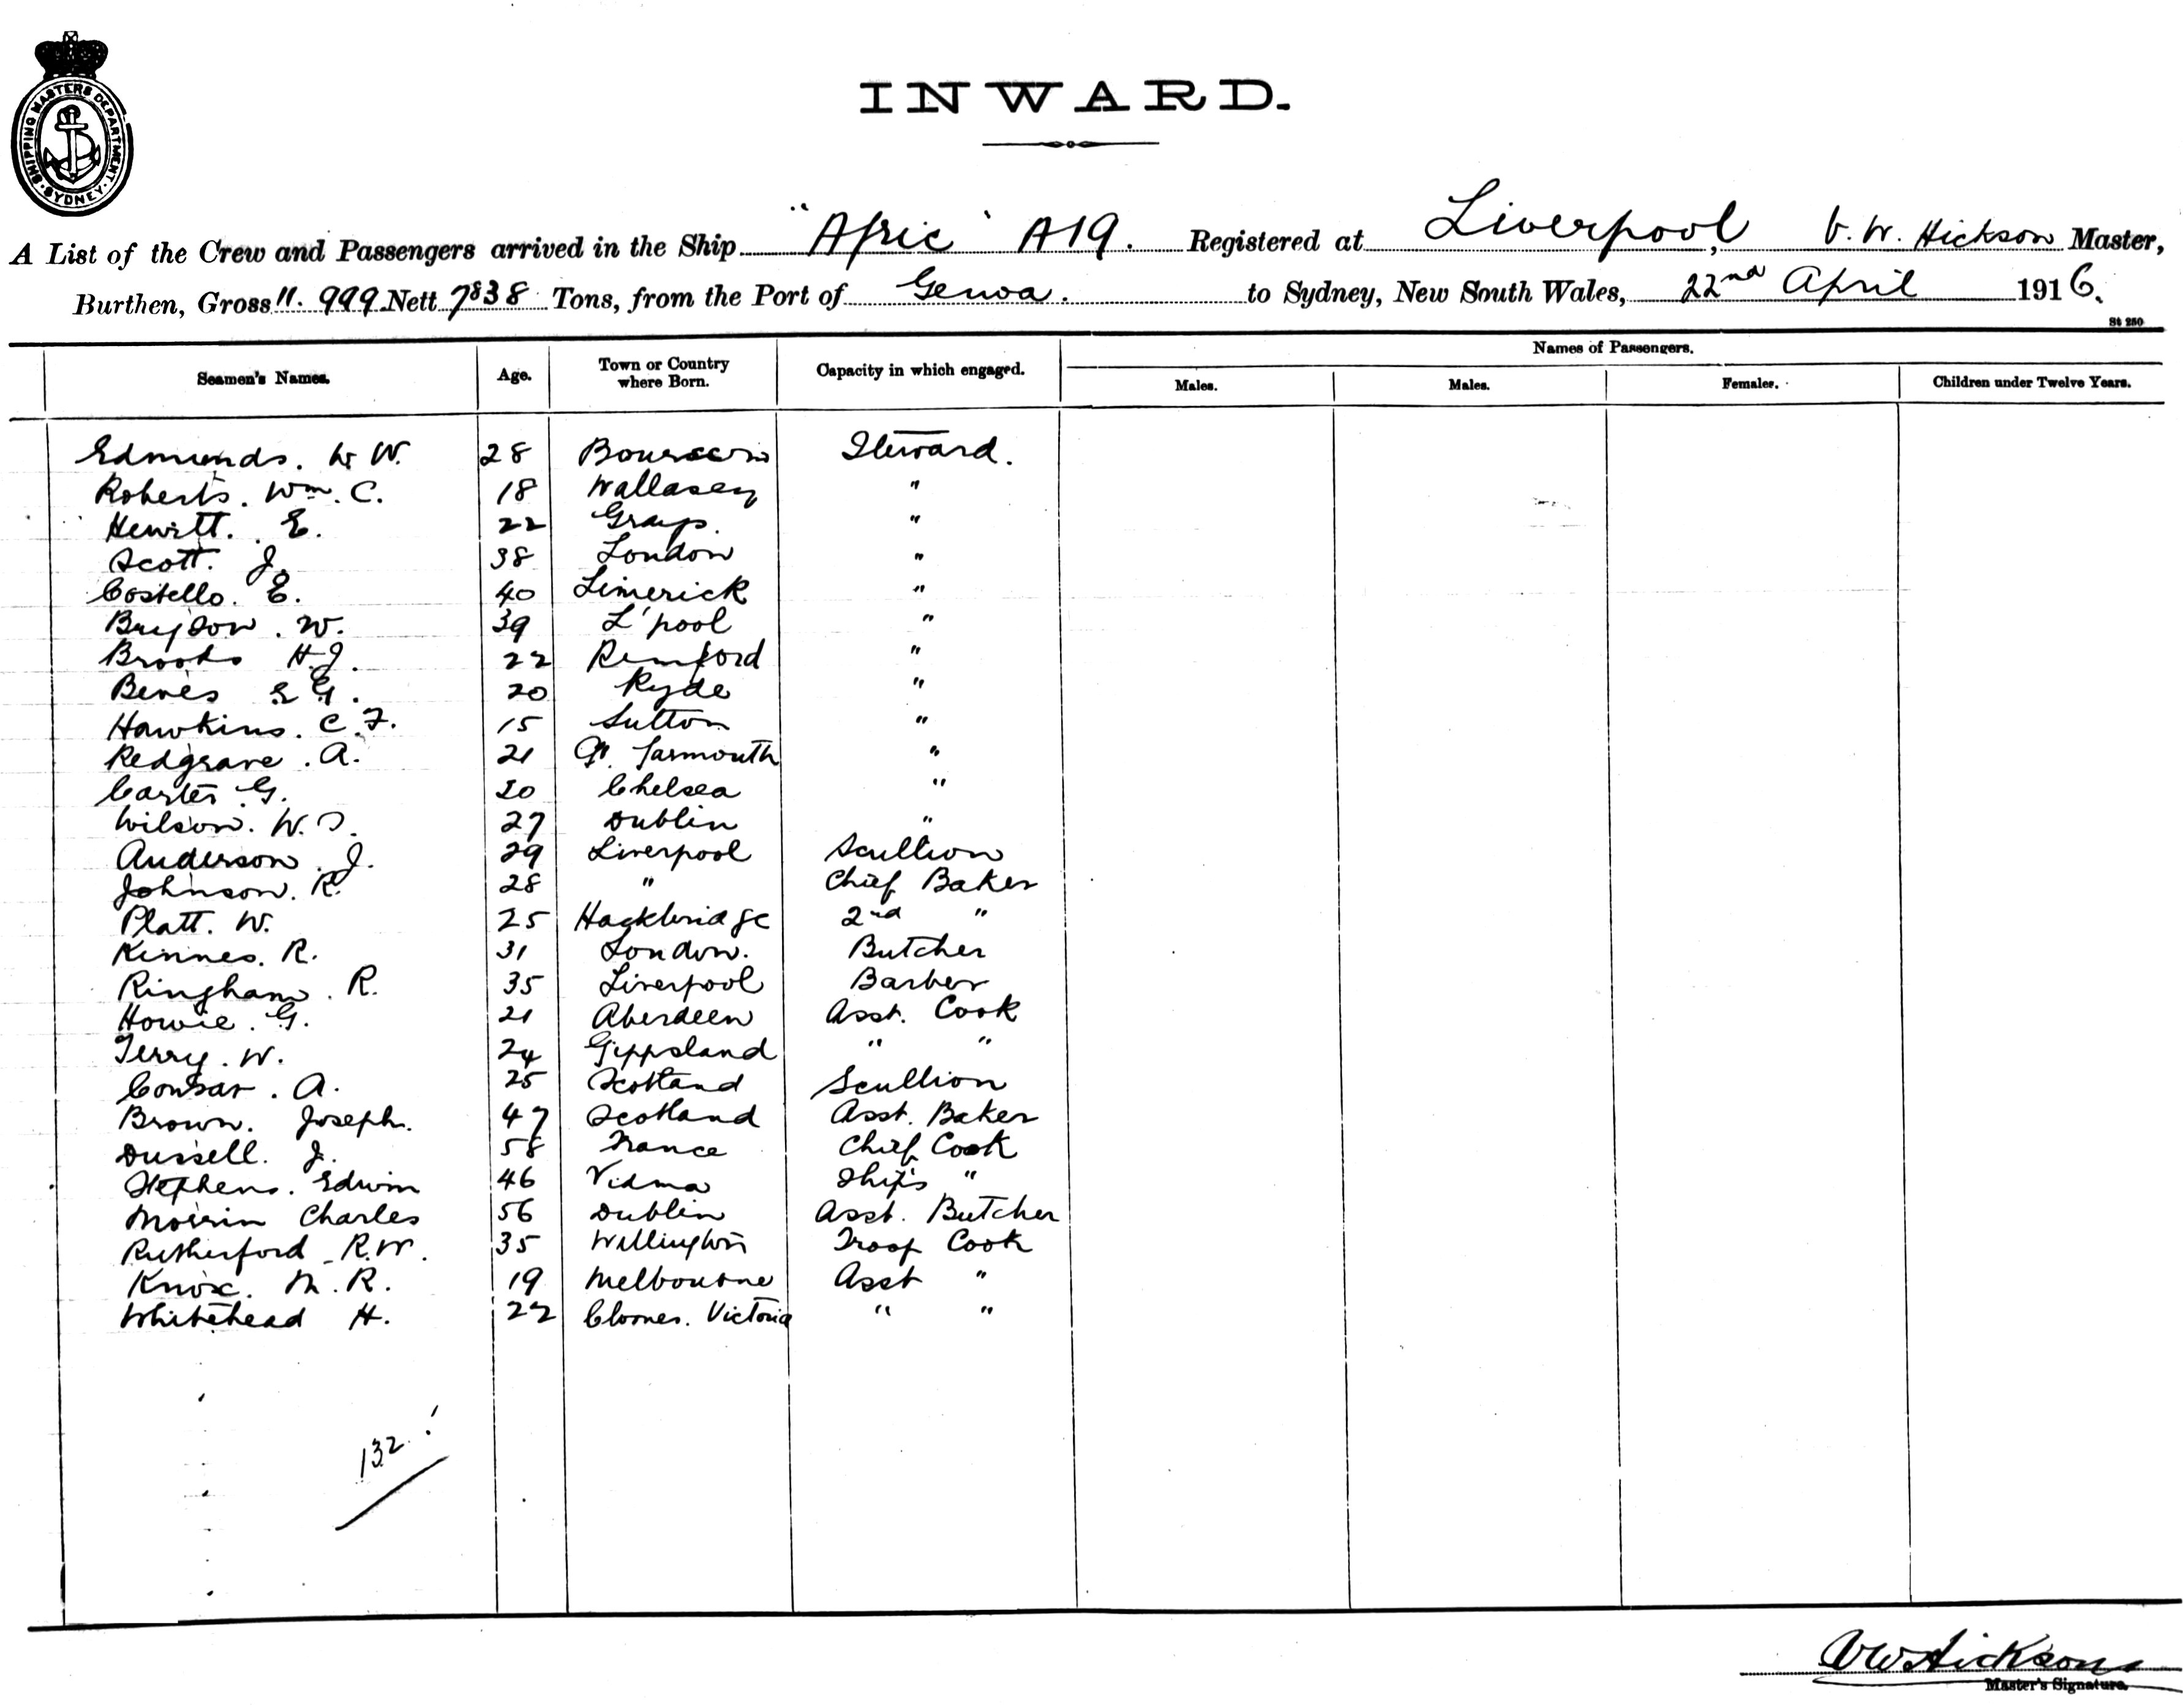 SHIPPING MASTERS DEPARTMENT · SYDNEY ·
INWARD.
A List of the Crew and Passengers arrived in the Ship "Afric" A19. Registered at Liverpool, V. W. Hickson Master,
Burthen, Gross 11.999 Nett 7838 Tons, from the Port of Genoa. to Sydney, New South Wales, 22nd April 1916.
St 250
Names of Passengers.
Seamen's Names. Age. Town or Country where Born. Capacity in which engaged. Males. Males. Females. Children under Twelve Years.
Edmunds. W W. 28 Steward.
Roberts. Wm. C. 18 Wallasey "
Hewitt. E. 22 Grays. "
Scott. J. 38 London "
Costello. E. 40 Limerick "
Bryson. W. 39 L'pool "
Brooks H.J. 22 Romford "
Beves E G. 20 Ryde "
Hawkins. C. F. 15 Sutton "
Redgrave. A. 21 Gt. Yarmouth "
Carter G. 20 Chelsea "
Wilson. W. 27 Dublin "
Anderson. J. 29 Liverpool Scullion
Johnson. R. 28 " Chief Baker
Platt. W. 25 Hackbridge 2nd "
Kinnes. R. 31 London. Butcher
Ringham. R. 35 Liverpool Barber
Howie. G. 21 Aberdeen Asst. Cook
Terry. W. 24 Gippsland " "
A. 25 Scotland Scullion
Brown. Joseph. 47 Scotland Asst. Baker
Dussell. J. 58 France Chief Cook
Stephens. Edwin 46 Ship's "
Morrin Charles 56 Dublin Asst. Butcher
Rutherford R.W. 35 Wellington Troop Cook
Knox. M. R. 19 Melbourne Asst "
Whitehead H. 22 Clunes. Victoria " "
132
VW Hickson
Master's Signature.